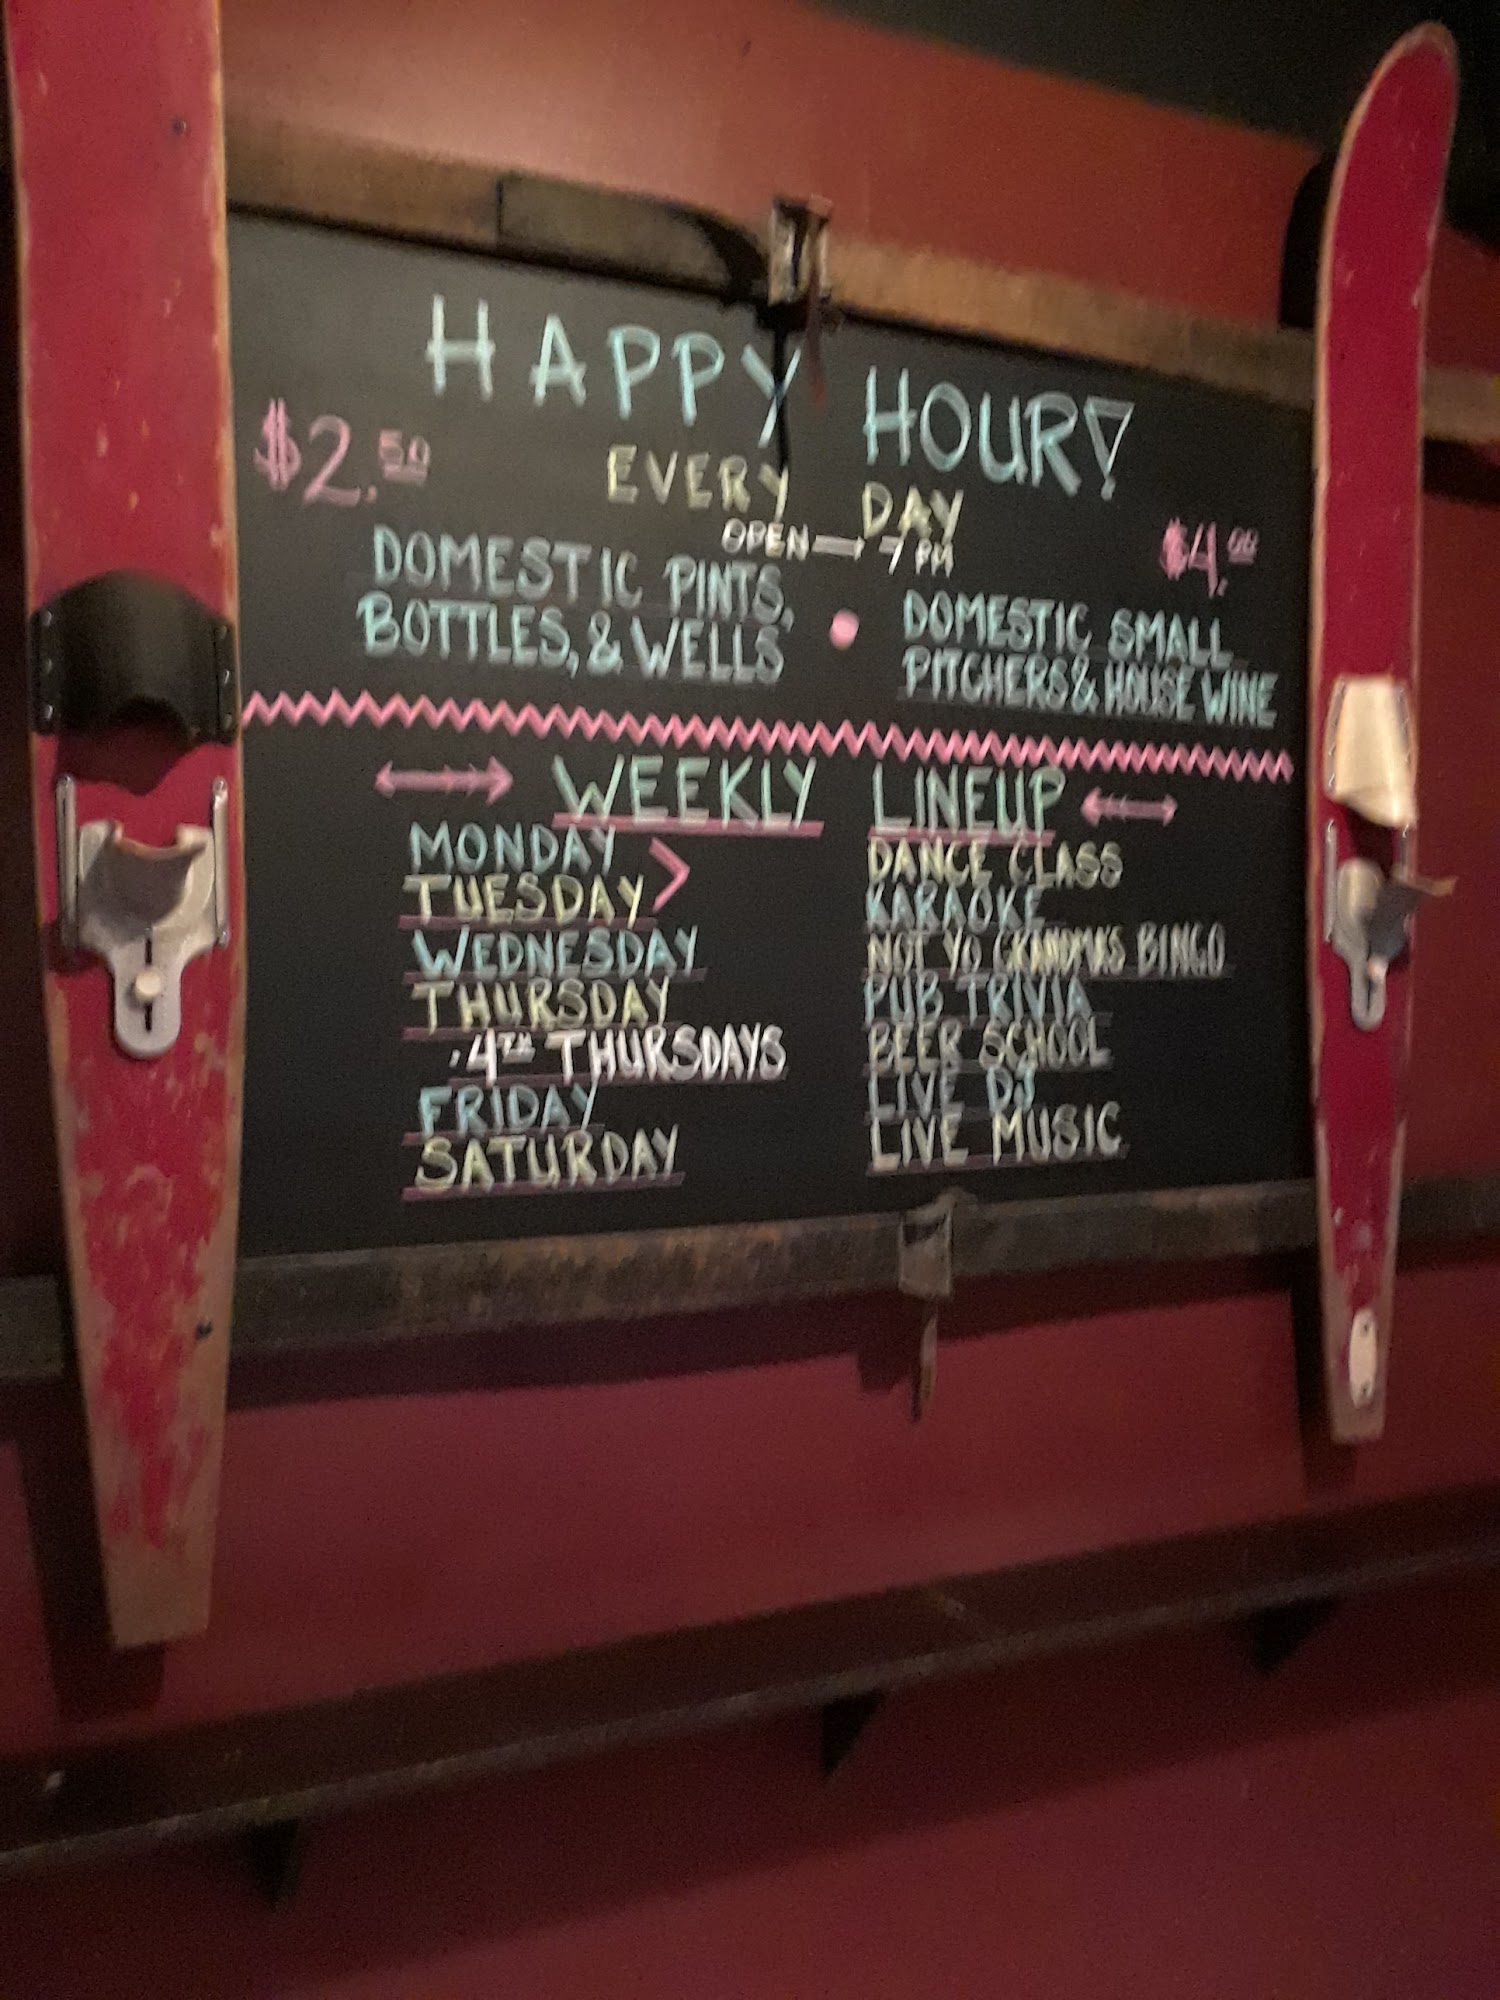 HAPPY HOUR!
$2.50 EVERY DAY
OPEN → 7 PM $4.00
DOMESTIC PINTS,
BOTTLES, & WELLS
DOMESTIC SMALL
PITCHERS & HOUSE WINE
WEEKLY LINEUP
MONDAY DANCE CLASS
TUESDAY KARAOKE
WEDNESDAY NOT YO GRANDMA'S BINGO
THURSDAY PUB TRIVIA
4TH THURSDAYS BEER SCHOOL
FRIDAY LIVE DJ
SATURDAY LIVE MUSIC